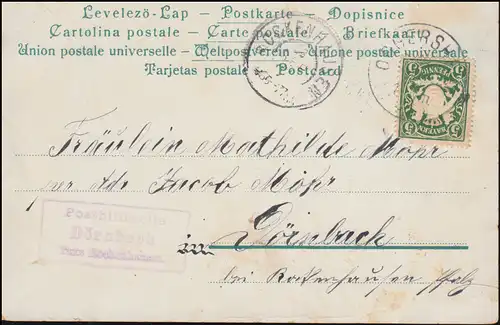 Levelezö-Lap — Postkarte — Dopisnice
Cartolina postale — Carte postale — Briefkaart
Union postale universelle — Weltpostverein — Unione postale universale
Tarjetas postale — Postcard
ROCKENHAUSEN
PFENNIG
BAYERN
5
Fräulein Mathilde Mohr
per Adr. Jacob Mohr
Posthilfstelle
Dörnbach
in Dörnbach
bei Rockenhausen Pfalz